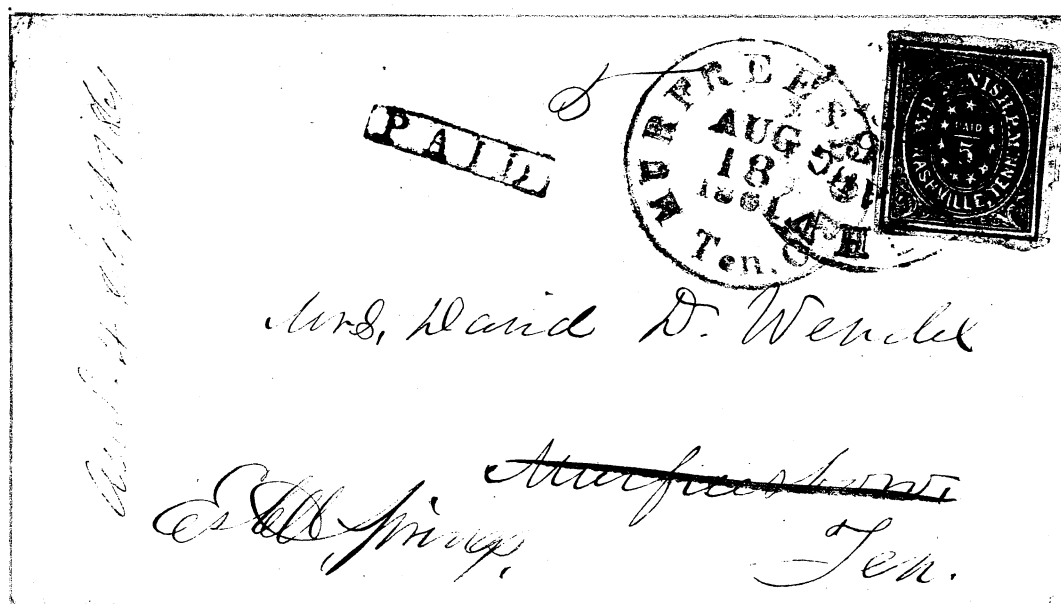 PAID
5
MURFREESBORO
AUG
18
1861
Ten.
W.D. M'NISH, P.M.
PAID
5
NASHVILLE, TENN.
Mrs. David D. Wendel
Murfreesboro,
Estell Springs,
Ten.